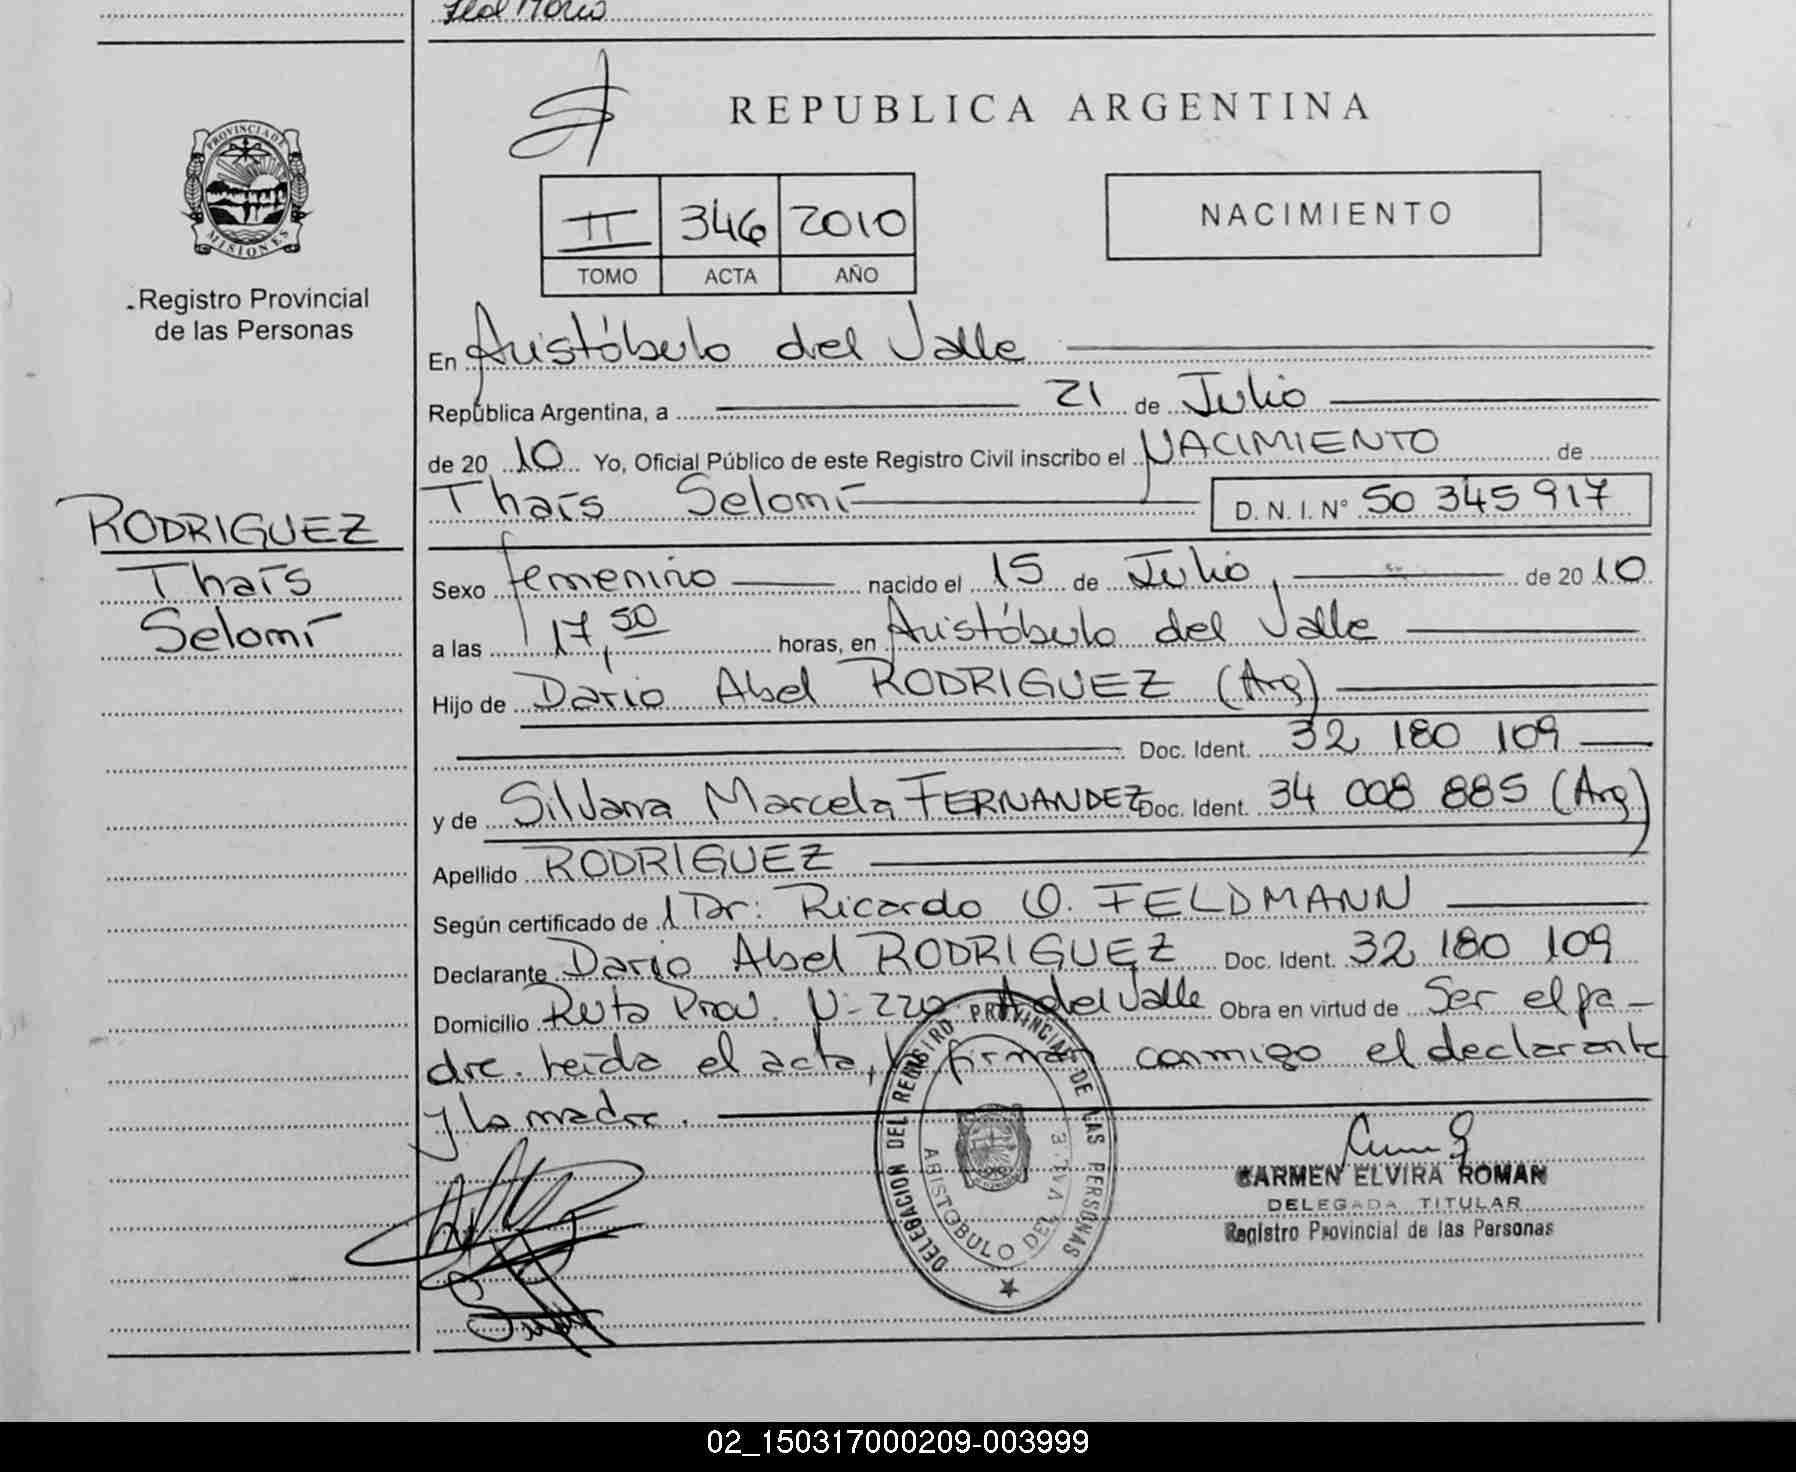 REPUBLICA ARGENTINA
PROVINCIA DE
MISIONES
Registro Provincial
de las Personas
II 346 2010
TOMO ACTA AÑO
NACIMIENTO
En Aristóbulo del Valle
República Argentina, a 21 de Julio
de 20 10 Yo, Oficial Público de este Registro Civil inscribo el NACIMIENTO de
Thaïs Selomí D. N. I. Nº 50 345 917
RODRIGUEZ
Thaïs
Selomí
Sexo femenino nacido el 15 de Julio, de 20 10
a las 17,50 horas, en Aristóbulo del Valle
Hijo de Dario Abel RODRIGUEZ (Arg)
Doc. Ident. 32 180 109
y de Silvana Marcela FERNANDEZ Doc. Ident. 34 008 885 (Arg)
Apellido RODRIGUEZ
Según certificado de l Dr: Ricardo O. FELDMANN
Declarante Dario Abel RODRIGUEZ Doc. Ident. 32 180 109
Domicilio Ruta Prov. Nº 220 A del Valle Obra en virtud de Ser el pa-
dre. Leída el acta, la firman conmigo el declarante
y la madre.
DELEGACION DEL REGISTRO PROVINCIAL DE LAS PERSONAS
ARISTOBULO DEL VALLE
CARMEN ELVIRA ROMAN
DELEGADA TITULAR
Registro Provincial de las Personas
02_150317000209-003999